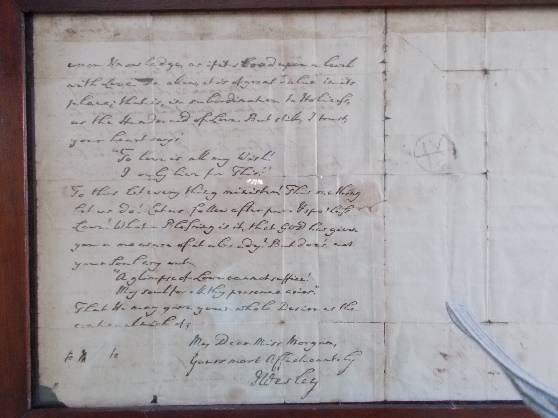 even Knowledge, as if it stood upon a level
with Love. In alone, it is of great value in its
place; that is, in subordination to Holiness,
as the Handmaid of Love. But still, I trust,
your heart says
"To love is all my Wish!
I only live for This!"
To this let every thing minister! This one thing
let us do! Let us follow after pure & spotless
Love! What a Blessing is it, that God has given
you a measure of it already! But does not
your Soul cry out,
"A glimpse of Love cannot suffice!
My soul for all thy presence cries."
That He may give you your whole Desire is the
continual wish of,
My Dear Miss Morgan,
Yours most Affectionately
J Wesley